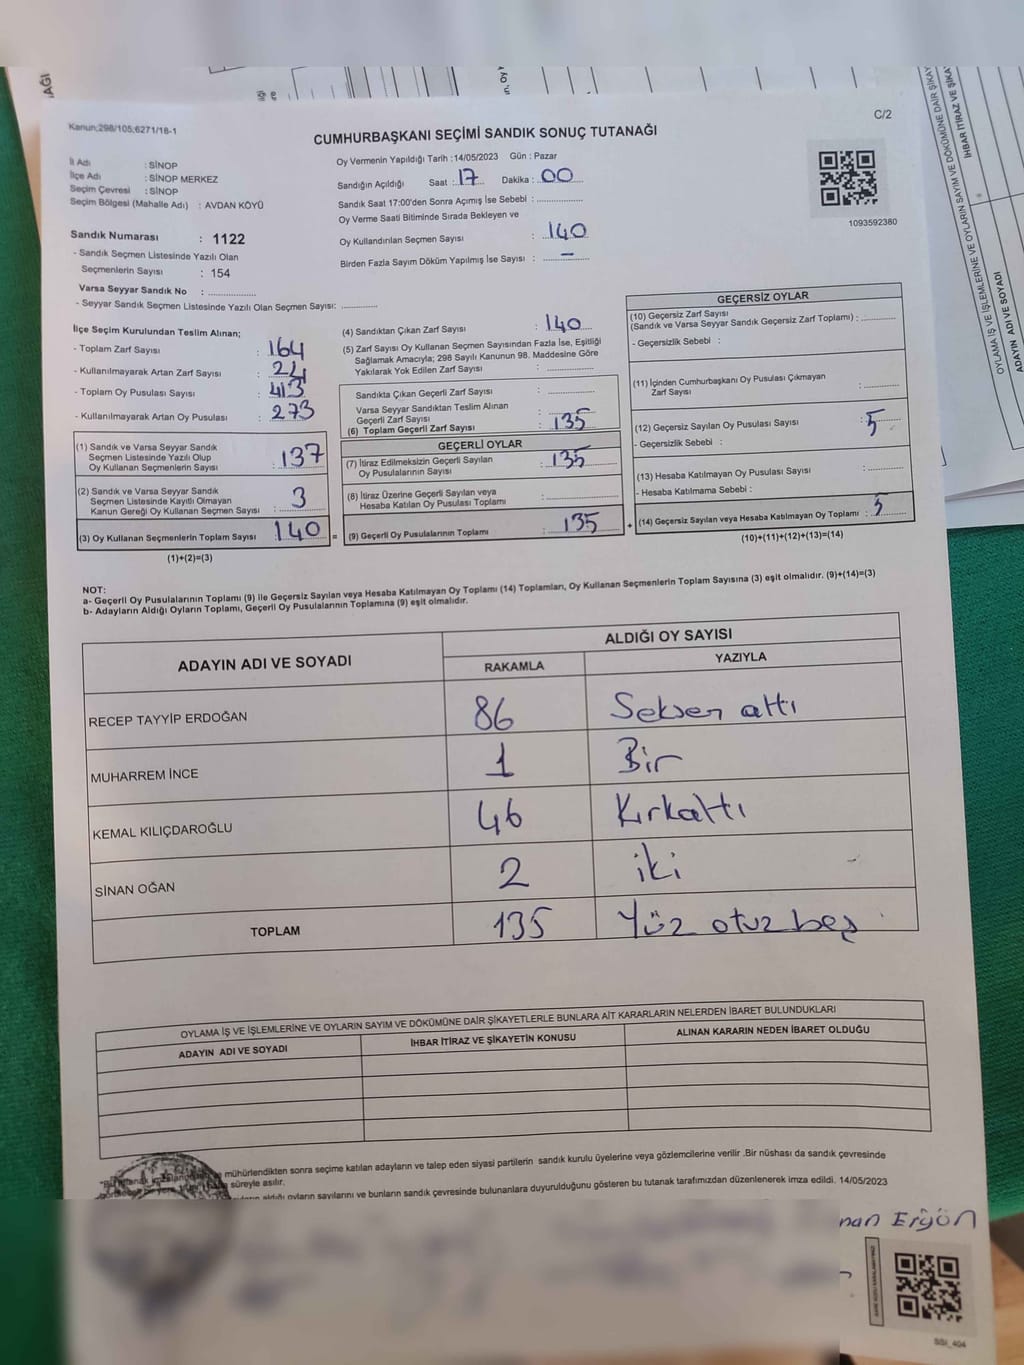 AĞI
Kanun;298/105;6271/18-1
C/2
CUMHURBAŞKANI SEÇİMİ SANDIK SONUÇ TUTANAĞI
İl Adı : SİNOP
İlçe Adı : SİNOP MERKEZ
Seçim Çevresi : SİNOP
Seçim Bölgesi (Mahalle Adı) : AVDAN KÖYÜ
Oy Vermenin Yapıldığı Tarih :14/05/2023 Gün : Pazar
Sandığın Açıldığı Saat : 17 Dakika : 00
Sandık Saat 17:00'den Sonra Açımış İse Sebebi :
Oy Verme Saati Bitiminde Sırada Bekleyen ve
Oy Kullandırılan Seçmen Sayısı : 140
Birden Fazla Sayım Döküm Yapılmış İse Sayısı : -
1093592380
Sandık Numarası : 1122
- Sandık Seçmen Listesinde Yazılı Olan
Seçmenlerin Sayısı : 154
Varsa Seyyar Sandık No :
- Seyyar Sandık Seçmen Listesinde Yazılı Olan Seçmen Sayısı:
İlçe Seçim Kurulundan Teslim Alınan;
- Toplam Zarf Sayısı : 164
- Kullanılmayarak Artan Zarf Sayısı : 24
- Toplam Oy Pusulası Sayısı : 413
- Kullanılmayarak Artan Oy Pusulası : 273
(1) Sandık ve Varsa Seyyar Sandık
Seçmen Listesinde Yazılı Olup
Oy Kullanan Seçmenlerin Sayısı : 137
(2) Sandık ve Varsa Seyyar Sandık
Seçmen Listesinde Kayıtlı Olmayan
Kanun Gereği Oy Kullanan Seçmen Sayısı : 3
(3) Oy Kullanan Seçmenlerin Toplam Sayısı 140
(1)+(2)=(3)
(4) Sandıktan Çıkan Zarf Sayısı : 140
(5) Zarf Sayısı Oy Kullanan Seçmen Sayısından Fazla İse, Eşitliği
Sağlamak Amacıyla; 298 Sayılı Kanunun 98. Maddesine Göre
Yakılarak Yok Edilen Zarf Sayısı :
Sandıkta Çıkan Geçerli Zarf Sayısı :
Varsa Seyyar Sandıktan Teslim Alınan
Geçerli Zarf Sayısı :
(6) Toplam Geçerli Zarf Sayısı : 135
GEÇERLİ OYLAR
(7) İtiraz Edilmeksizin Geçerli Sayılan
Oy Pusulalarının Sayısı : 135
(8) İtiraz Üzerine Geçerli Sayılan veya
Hesaba Katılan Oy Pusulası Toplamı :
= (9) Geçerli Oy Pusulalarının Toplamı : 135
GEÇERSİZ OYLAR
(10) Geçersiz Zarf Sayısı
(Sandık ve Varsa Seyyar Sandık Geçersiz Zarf Toplamı) :
- Geçersizlik Sebebi :
(11) İçinden Cumhurbaşkanı Oy Pusulası Çıkmayan
Zarf Sayısı :
(12) Geçersiz Sayılan Oy Pusulası Sayısı : 5
- Geçersizlik Sebebi :
(13) Hesaba Katılmayan Oy Pusulası Sayısı :
- Hesaba Katılmama Sebebi :
+ (14) Geçersiz Sayılan veya Hesaba Katılmayan Oy Toplamı : 5
(10)+(11)+(12)+(13)=(14)
NOT:
a- Geçerli Oy Pusulalarının Toplamı (9) ile Geçersiz Sayılan veya Hesaba Katılmayan Oy Toplamı (14) Toplamları, Oy Kullanan Seçmenlerin Toplam Sayısına (3) eşit olmalıdır. (9)+(14)=(3)
b- Adayların Aldığı Oyların Toplamı, Geçerli Oy Pusulalarının Toplamına (9) eşit olmalıdır.
ADAYIN ADI VE SOYADI ALDIĞI OY SAYISI
RAKAMLA YAZIYLA
RECEP TAYYİP ERDOĞAN 86 Seksen altı
MUHARREM İNCE 1 Bir
KEMAL KILIÇDAROĞLU 46 Kırkaltı
SİNAN OĞAN 2 iki
TOPLAM 135 Yüz otuz beş
OYLAMA İŞ VE İŞLEMLERİNE VE OYLARIN SAYIM VE DÖKÜMÜNE DAİR ŞİKAYETLERLE BUNLARA AİT KARARLARIN NELERDEN İBARET BULUNDUKLARI
ADAYIN ADI VE SOYADI İHBAR İTİRAZ VE ŞİKAYETİN KONUSU ALINAN KARARIN NEDEN İBARET OLDUĞU
mühürlendikten sonra seçime katılan adayların ve talep eden siyasi partilerin sandık kurulu üyelerine veya gözlemcilerine verilir .Bir nüshası da sandık çevresinde
süreyle asılır.
aldığı oyların sayılarını ve bunların sandık çevresinde bulunanlara duyurulduğunu gösteren bu tutanak tarafımızdan düzenlenerek imza edildi. 14/05/2023
nan Ergön
SSİ_404
OYLAMA İŞ VE İŞLEMLERİNE VE OYLARIN SAYIM VE DÖKÜMÜNE DAİR ŞİKAY
ADAYIN ADI VE SOYADI
İHBAR İTİRAZ VE ŞİKA